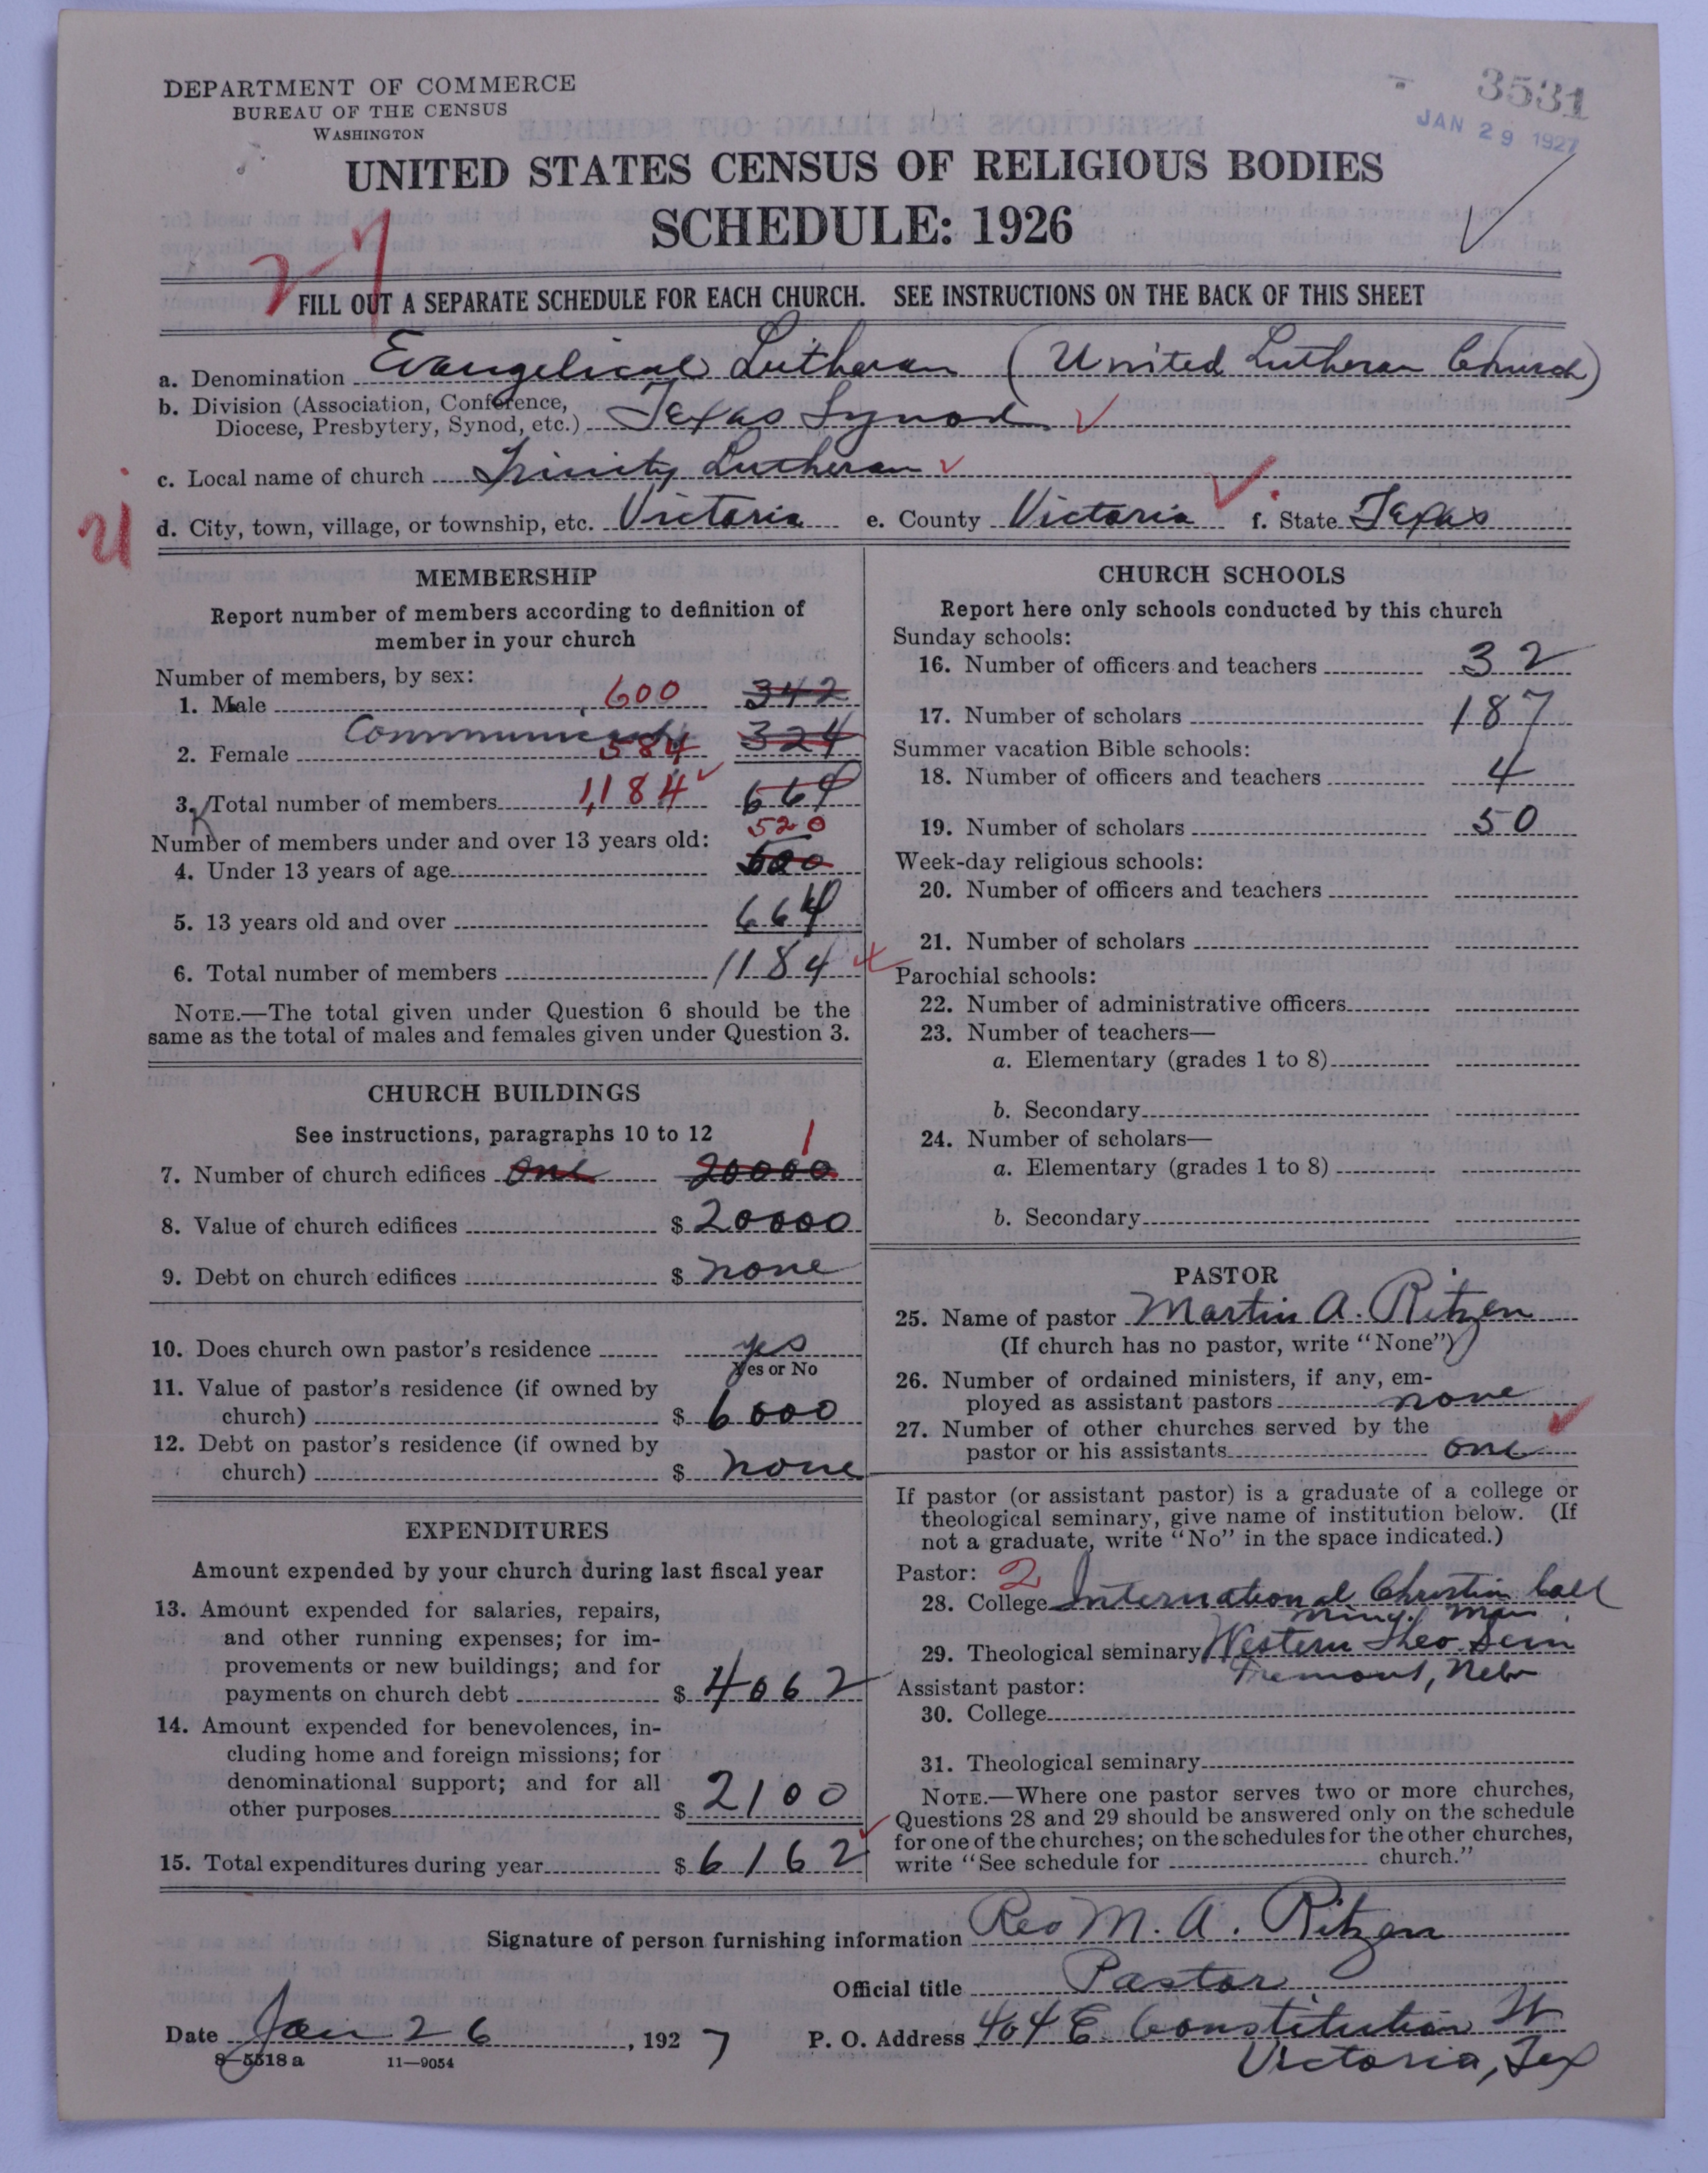 3531
JAN 29 1927
DEPARTMENT OF COMMERCE
BUREAU OF THE CENSUS
WASHINGTON
UNITED STATES CENSUS OF RELIGIOUS BODIES
SCHEDULE: 1926
27
FILL OUT A SEPARATE SCHEDULE FOR EACH CHURCH. SEE INSTRUCTIONS ON THE BACK OF THIS SHEET
a. Denomination Evangelical Lutheran (United Lutheran Church)
b. Division (Association, Conference,
Diocese, Presbytery, Synod, etc.) Texas Synod
c. Local name of church Trinity Lutheran
d. City, town, village, or township, etc. Victoria e. County Victoria f. State Texas
MEMBERSHIP
Report number of members according to definition of
member in your church
Number of members, by sex:
1. Male 600 342
Communicants
2. Female 584 324
3. Total number of members 1,184 664
520
Number of members under and over 13 years old:
4. Under 13 years of age
5. 13 years old and over 664
6. Total number of members 1184
NOTE.—The total given under Question 6 should be the
same as the total of males and females given under Question 3.
CHURCH BUILDINGS
See instructions, paragraphs 10 to 12
1
7. Number of church edifices one 20000
8. Value of church edifices $ 20000
9. Debt on church edifices $ none
10. Does church own pastor's residence yes
Yes or No
11. Value of pastor's residence (if owned by
church) $ 6000
12. Debt on pastor's residence (if owned by
church) $ none
EXPENDITURES
Amount expended by your church during last fiscal year
13. Amount expended for salaries, repairs,
and other running expenses; for im-
provements or new buildings; and for
payments on church debt $ 4062
14. Amount expended for benevolences, in-
cluding home and foreign missions; for
denominational support; and for all
other purposes $ 2100
15. Total expenditures during year $ 6162
CHURCH SCHOOLS
Report here only schools conducted by this church
Sunday schools:
16. Number of officers and teachers 32
17. Number of scholars 187
Summer vacation Bible schools:
18. Number of officers and teachers 4
19. Number of scholars 50
Week-day religious schools:
20. Number of officers and teachers
21. Number of scholars
Parochial schools:
22. Number of administrative officers
23. Number of teachers—
a. Elementary (grades 1 to 8)
b. Secondary
24. Number of scholars—
a. Elementary (grades 1 to 8)
b. Secondary
PASTOR
25. Name of pastor Martin A. Ritzen
(If church has no pastor, write "None")
26. Number of ordained ministers, if any, em-
ployed as assistant pastors none
27. Number of other churches served by the
pastor or his assistants one
If pastor (or assistant pastor) is a graduate of a college or
theological seminary, give name of institution below. (If
not a graduate, write "No" in the space indicated.)
Pastor: 2
28. College International Christin Coll
29. Theological seminary Western Theo. Sem
Fremont, Nebr
Assistant pastor:
30. College
31. Theological seminary
NOTE.—Where one pastor serves two or more churches,
Questions 28 and 29 should be answered only on the schedule
for one of the churches; on the schedules for the other churches,
write "See schedule for church."
Signature of person furnishing information Rev M. A. Ritzen
Official title Pastor
Date Jan 26, 1927 P. O. Address 404 E. Constitution St
Victoria, Tex
8—5518 a 11—9054